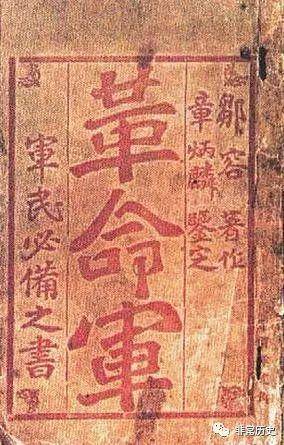 鄒容著作
章炳麟鑒定
革命軍
軍民必備之書
非常历史